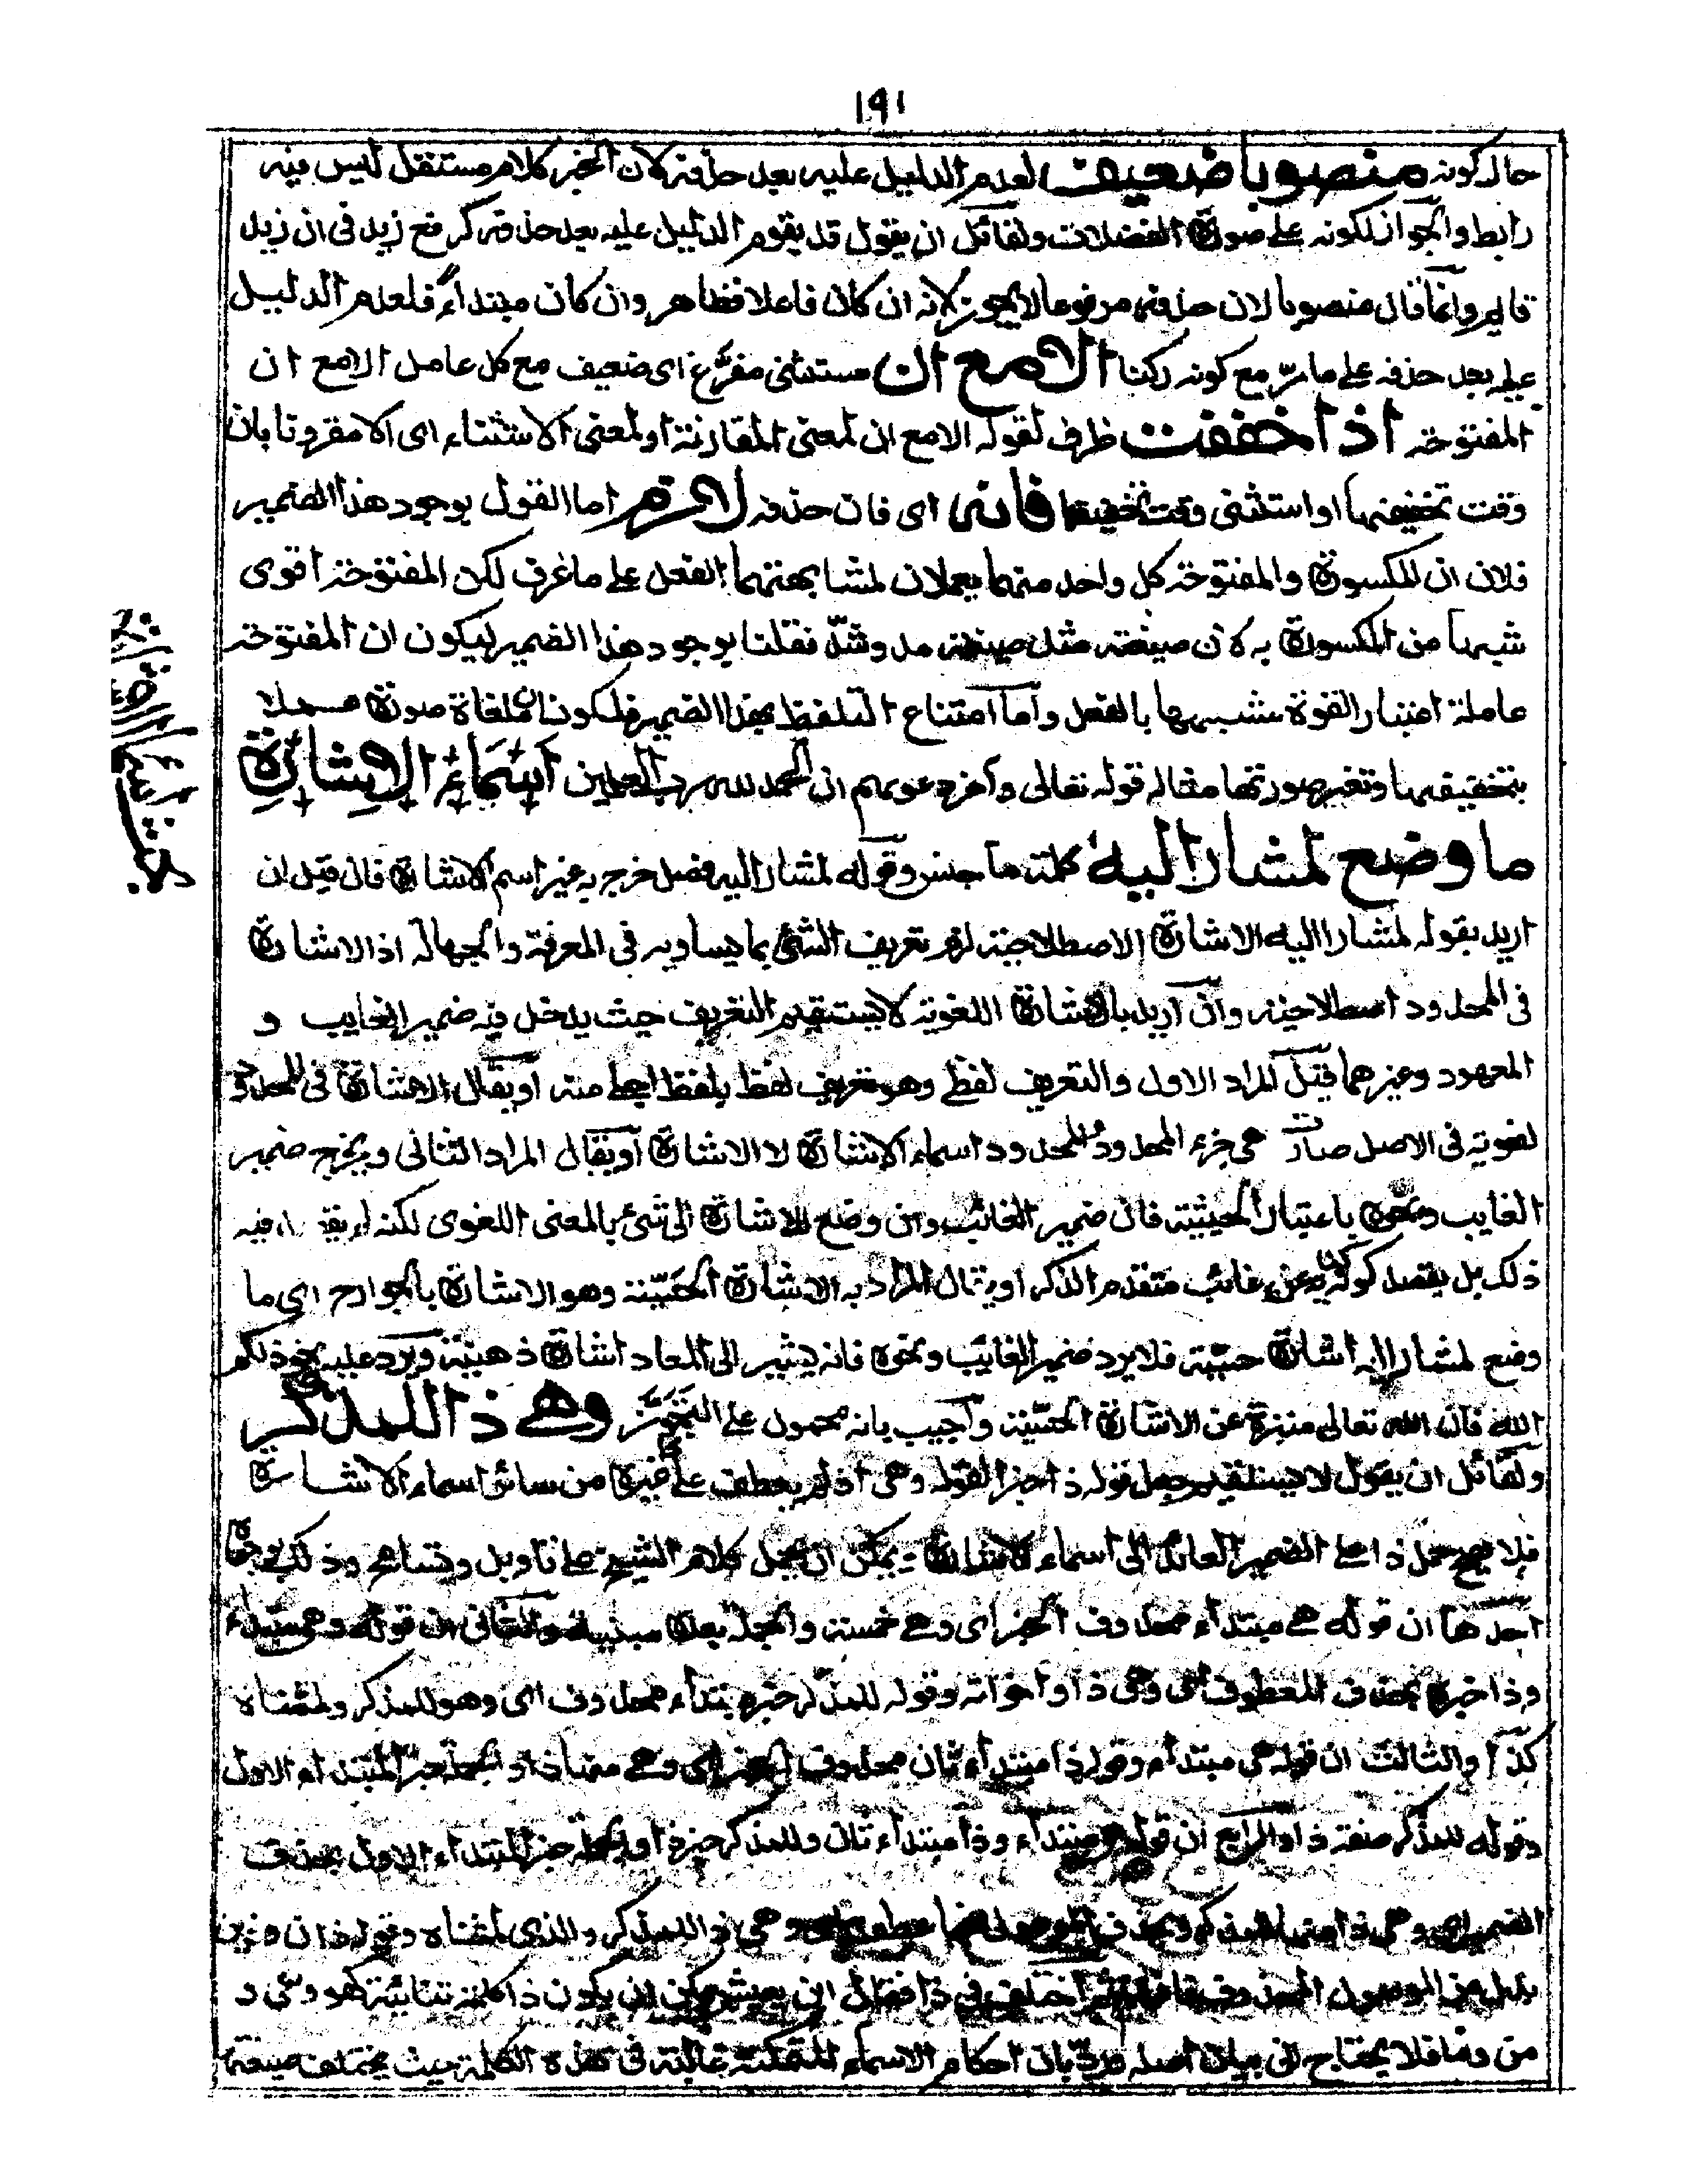 ١٩١
حال كونه منصوبا ضعيف لعدم الدليل عليه بعد حذفه لان الخبر كلام مستقل ليس فيه
رابط والجواز لكونه على صورة الفضلات ولقائل ان يقول قد يقوم الدليل عليه بعد حذفه كرفع زيد فى ان زيد
قايم وانما قال منصوبا لان حذفه مرفوعا لا يجوز لانه ان كان فاعلا فظاهر وان كان مبتداء فلعدم الدليل
عليه بعد حذفه على ما مرّ مع كونه ركنا الا مع ان مستثنى مفرّغ اى ضعيف مع كل عامل الا مع ان
المفتوحة اذا خففت ظرف لقوله الا مع ان لمعنى المقارنة او لمعنى الاستثناء اى الا مقرونا بان
وقت تخفيفها او استثنى وقت تخفيفها فانه اى فان حذفه لازم اما القول بوجود هذا الضمير
فلان ان المكسورة والمفتوحة كل واحد منهما يعملان لمشابهتهما الفعل على ما عرف لكن المفتوحة اقوى
شبها من المكسورة به لان صيغته مثل صيغة مد وشدّ فقلنا بوجود هذا الضمير ليكون ان المفتوحة
عاملة اعتبار القوة شبهها بالفعل وأما امتناع التلفظ بهذا الضمير فلكونها ملغاة صورة مسهلا
بتخفيفها وتغير صورتها مثاله قوله تعالى وآخر دعويهم ان الحمد لله رب العلمين اسماء الاشارة
ما وضع لمشار اليه كلمة ما جنس وقوله لمشار اليه فصل خرج به غير اسم الاشارة فان قيل ان
اريد بقوله لمشار اليه الاشارة الاصطلاحية لزم تعريف الشئ بما يساويه فى المعرفة والجهالة اذ الاشارة
فى المحدود اصطلاحية وان اريد بالاشارة اللغوية لا يستقيم التعريف حيث يدخل فيه ضمير الغايب و
المعهود وغيرهما قيل المراد الاول والتعريف لفظى وهو تعريف لفظ بلفظ اجلى منه او يقال الاشارة فى المحدود
لغوية فى الاصل صارت هى جزء المحدود والمحدود اسماء الاشارة لا الاشارة او يقال المراد الثانى ويخرج ضمير
الغايب ونحوه باعتبار الحيثية فان ضمير الغائب وان وضع للاشارة الى شئ بالمعنى اللغوى لكنه لم فيه
ذلك بل يقصد كونه عن غائب متقدم الذكر او يقال المراد به الاشارة الحسّيّة وهو الاشارة بالجوارح اى ما
وضع لمشار اليه اشارة حسّيّة فلا يرد ضمير الغايب ونحوه فانه يشير الى المعاد اشارة ذهنية ويرد عليه نحو ذلكم
الله فان الله تعالى منزه عن الاشارة الحسّيّة واجيب بانه محمول على التجوّز وهى ذا للمذكر
ولقائل ان يقول لا يستقيم جعل قوله ذا خبرا لقوله وهى اذ لم يعطف عليه غيره من سائر اسماء الاشارة
فلا يصح حمل ذا على الضمير العائد الى اسماء الاشارة ويمكن ان يحمل كلام الشيخ على تاويل وتسامح وذلك بوجوه
احدها ان قوله هى مبتداء محذوف الخبر اى وهى خمسة والجملة بعدها مبنية والثانى ان قوله وهى مبتداء
وذا خبره بحذف المعطوف اى وهى ذا واخواته وقوله للمذكر خبر مبتداء محذوف اى وهو للمذكر ولمثناه
كذا والثالث ان قوله هى مبتداء وقوله ذا مبتداء ثان محذوف الخبر اى وهى منها ذا والجملة خبر المبتداء الاول
وقوله للمذكر صفة ذا والرابع ان قوله هى مبتداء وذا مبتداء ثان وللمذكر خبر ذا والجملة خبر المبتداء الاول بحذف
الضمير اى وهى ذا منها للمذكر وهى ذا للمذكر والذى لمثناه وقوله ذان وذين
بدل من الموصول المحذوف اختلف فى ذا فقال ابن يعيش يمكن ان يكون ذا كلمة ثنائية كهو وهى و
من وما فلا يحتاج الى بيان اصله بان احكام الاسماء المتمكنة غالبة فى هذه الكلمة حيث يختلف صيغتها